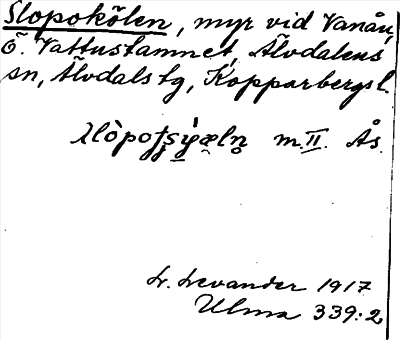 Slopokölen, myr vid Vanån,
Ö. Vattustamnet, Älvdalens
sn, Älvdals tg, Kopparbergs l.
m. II. Ås.
L. Levander 1917
Ulma 339:2